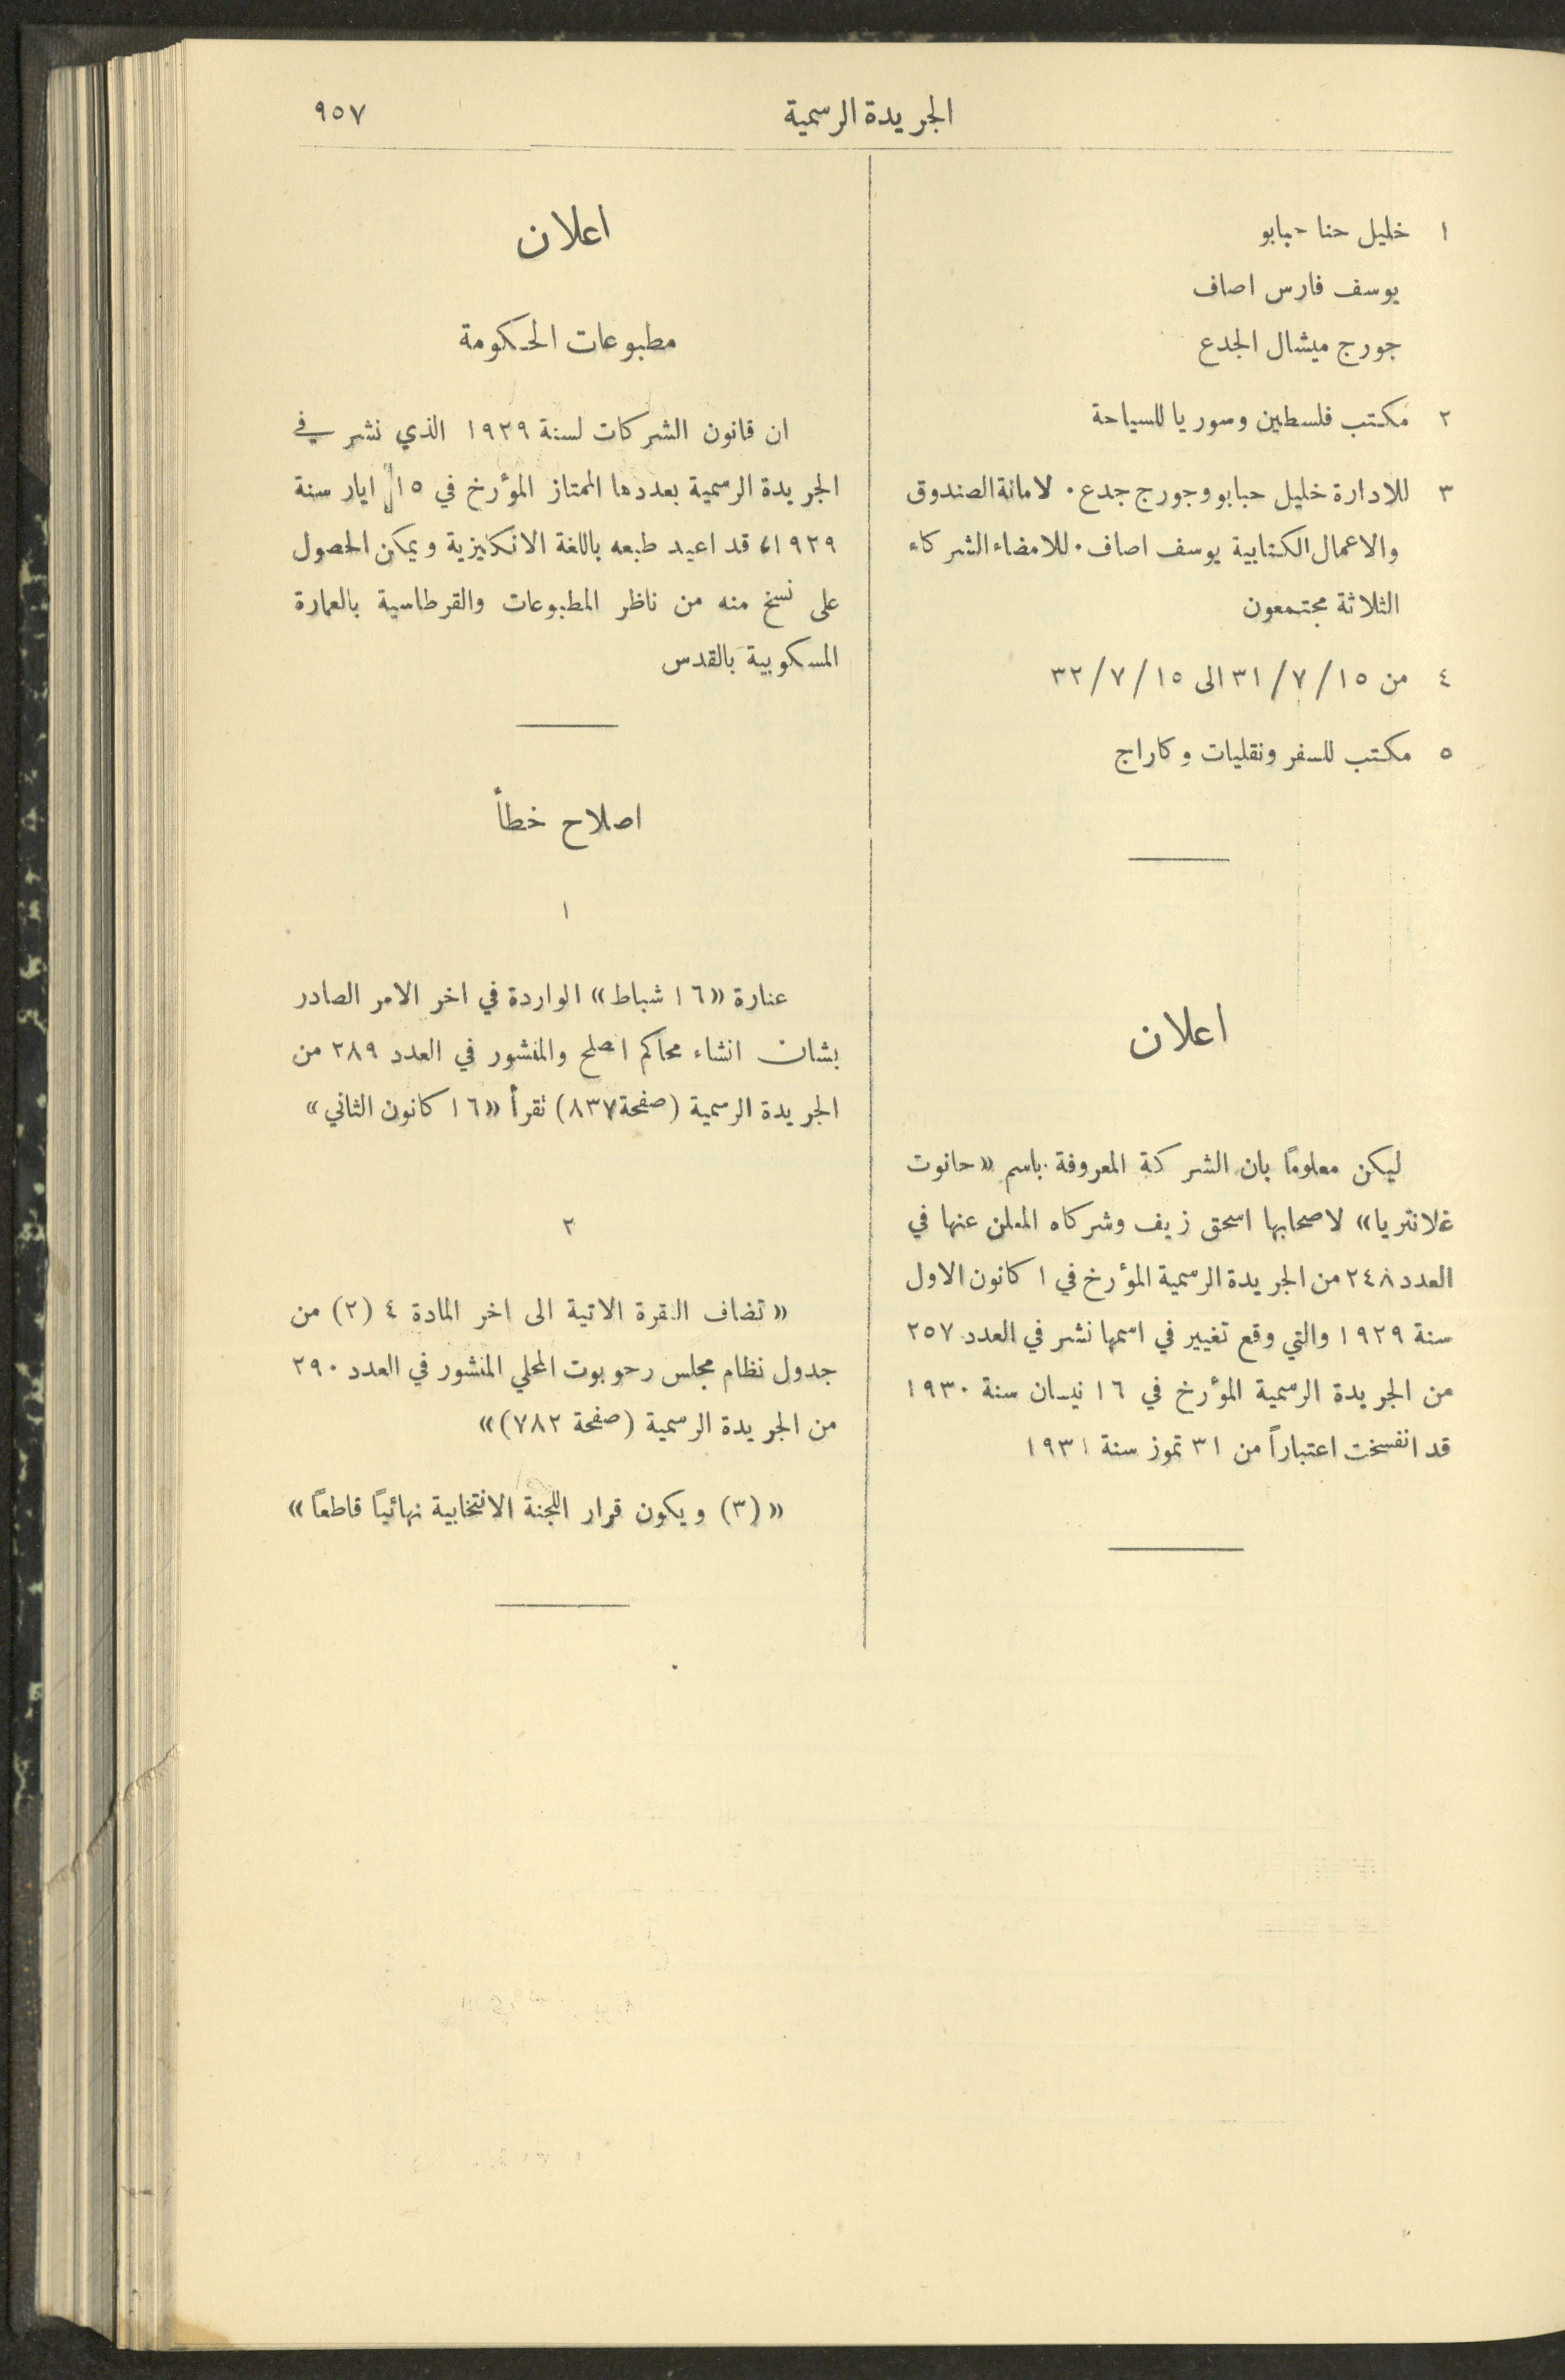 الجريدة الرسمية
٩٥٧
١ خليل حنا حبابو
يوسف فارس اصاف
جورج ميشال الجدع
٢ مكتب فلسطين وسوريا للسياحة
٣ للادارة خليل حبابو وجورج جدع. لامانة الصندوق
والاعمال الكتابية يوسف اصاف. للامضاء الشركاء
الثلاثة مجتمعون
٤ من ١٥/٧/٣١ الى ١٥/٧/٣٢
٥ مكتب للسفر ونقليات وكاراج
اعلان
ليكن معلوماً بان الشركة المعروفة باسم «حانوت
غلانتريا» لاصحابها اسحق زيف وشركاه المعلن عنها في
العدد ٢٤٨ من الجريدة الرسمية المؤرخ في ١ كانون الاول
سنة ١٩٢٩ والتي وقع تغيير في اسمها نشر في العدد ٢٥٧
من الجريدة الرسمية المؤرخ في ١٦ نيسان سنة ١٩٣٠
قد انفسخت اعتباراً من ٣١ تموز سنة ١٩٣١
اعلان
مطبوعات الحكومة
ان قانون الشركات لسنة ١٩٢٩ الذي نشر في
الجريدة الرسمية بعددها الممتاز المؤرخ في ١٥ ايار سنة
١٩٢٩، قد اعيد طبعه باللغة الانكليزية ويمكن الحصول
على نسخ منه من ناظر المطبوعات والقرطاسية بالعمارة
المسكوبية بالقدس
اصلاح خطأ
١
عنارة «١٦ شباط» الواردة في اخر الامر الصادر
بشان انشاء محاكم اصلح والمنشور في العدد ٢٨٩ من
الجريدة الرسمية (صفحة ٨٣٧) تقرأ «١٦ كانون الثاني»
٢
«تضاف الفقرة الاتية الى اخر المادة ٤ (٢) من
جدول نظام مجلس رحوبوت المحلي المنشور في العدد ٢٩٠
من الجريدة الرسمية (صفحة ٧٨٢)»
«(٣) ويكون قرار اللجنة الانتخابية نهائياً قاطعاً»